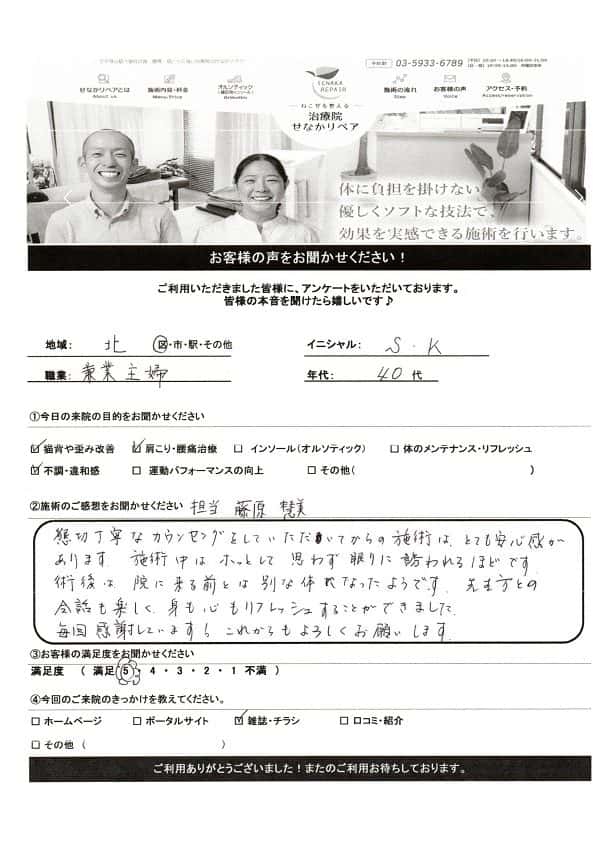 予約制 03-5933-6789
せなかリペアとは
About us
施術内容・料金
Menu,Price
オルソティック
SENAKA REPAIR
ねこぜを整える
治療院
せなかリペア
施術の流れ
Flow
お客様の声
Voice
アクセス・予約
Access/reservation
体に負担を掛けない
優しくソフトな技法で、
効果を実感できる施術を行います。
お客様の声をお聞かせください！
ご利用いただきました皆様に、アンケートをいただいております。
皆様の本音を聞けたら嬉しいです♪
地域： 北 区・市・駅・その他 イニシャル： S.K
職業： 兼業主婦 年代： 40 代
①今日の来院の目的をお聞かせください
☑ 猫背や歪み改善 ☑ 肩こり・腰痛治療 □ インソール（オルソティック） □ 体のメンテナンス・リフレッシュ
☑ 不調・違和感 □ 運動パフォーマンスの向上 □ その他（ ）
②施術のご感想をお聞かせください 担当 藤原 慧美
懇切丁寧なカウンセングをしていただいてからの施術は、とても安心感が
あります。施術中はホッとして思わず眠りに誘われるほどです。
術後は、院に来る前とは別な体になったようです。先生方との
会話も楽しく、身も心もリフレッシュすることができました。
毎回感謝しています！これからもよろしくお願いします。
③お客様の満足度をお聞かせください
満足度 （ 満足 5・4・3・2・1 不満 ）
④今回のご来院のきっかけを教えてください。
□ ホームページ □ ポータルサイト ☑ 雑誌・チラシ □ 口コミ・紹介
□ その他（ ）
ご利用ありがとうございました！またのご利用お待ちしております。